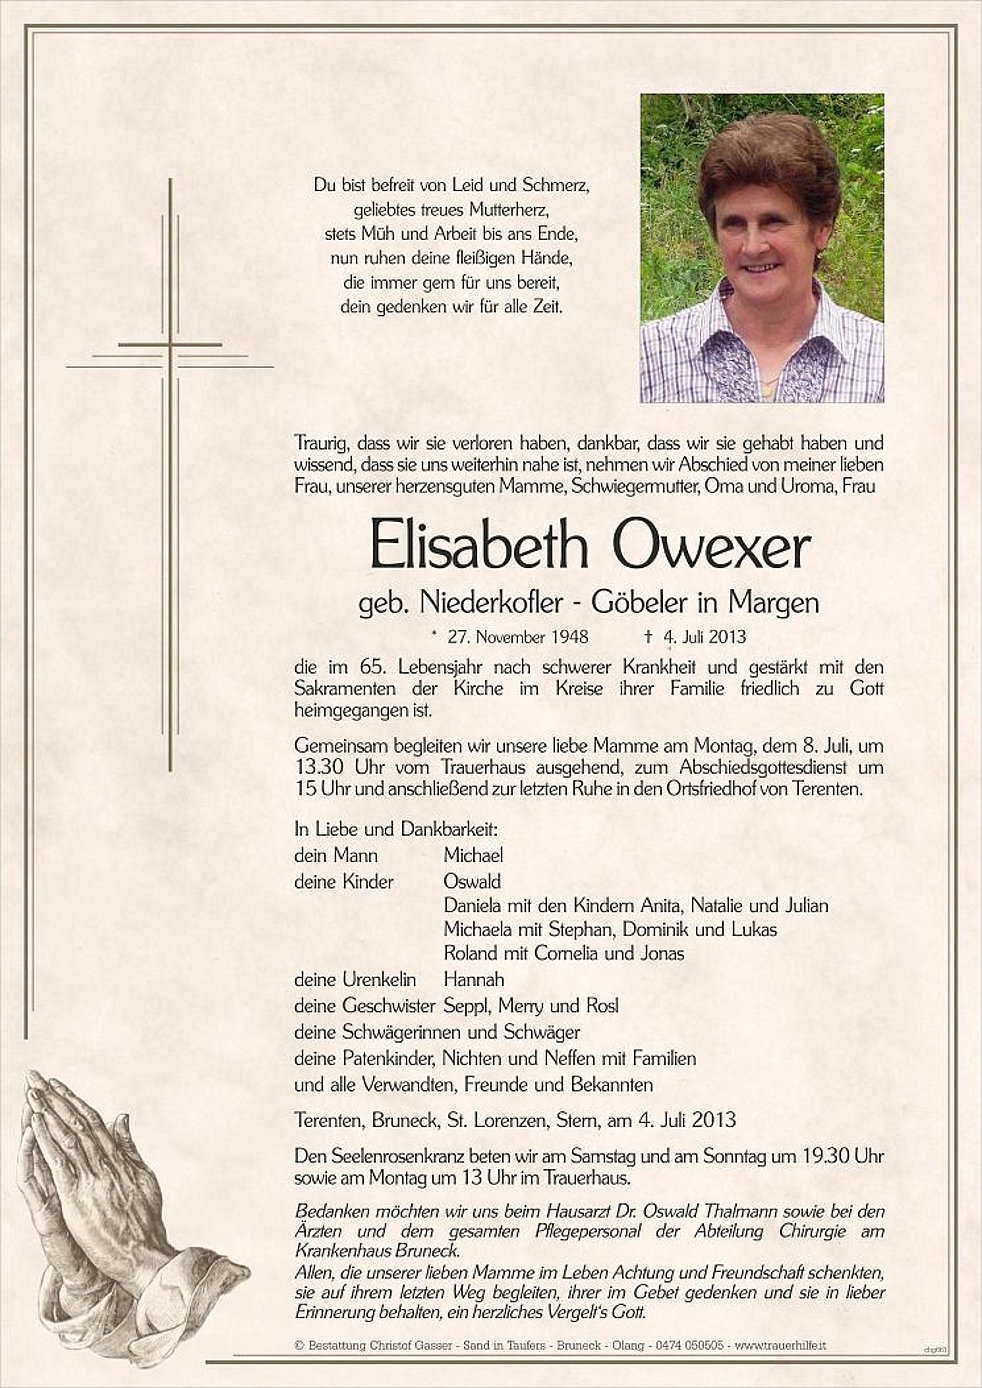 Du bist befreit von Leid und Schmerz,
geliebtes treues Mutterherz,
stets Müh und Arbeit bis ans Ende,
nun ruhen deine fleißigen Hände,
die immer gern für uns bereit,
dein gedenken wir für alle Zeit.
Traurig, dass wir sie verloren haben, dankbar, dass wir sie gehabt haben und
wissend, dass sie uns weiterhin nahe ist, nehmen wir Abschied von meiner lieben
Frau, unserer herzensguten Mamme, Schwiegermutter, Oma und Uroma, Frau
Elisabeth Owexer
geb. Niederkofler - Göbeler in Margen
* 27. November 1948 † 4. Juli 2013
die im 65. Lebensjahr nach schwerer Krankheit und gestärkt mit den
Sakramenten der Kirche im Kreise ihrer Familie friedlich zu Gott
heimgegangen ist.
Gemeinsam begleiten wir unsere liebe Mamme am Montag, dem 8. Juli, um
13.30 Uhr vom Trauerhaus ausgehend, zum Abschiedsgottesdienst um
15 Uhr und anschließend zur letzten Ruhe in den Ortsfriedhof von Terenten.
In Liebe und Dankbarkeit:
dein Mann Michael
deine Kinder Oswald
Daniela mit den Kindern Anita, Natalie und Julian
Michaela mit Stephan, Dominik und Lukas
Roland mit Cornelia und Jonas
deine Urenkelin Hannah
deine Geschwister Seppl, Merry und Rosl
deine Schwägerinnen und Schwäger
deine Patenkinder, Nichten und Neffen mit Familien
und alle Verwandten, Freunde und Bekannten
Terenten, Bruneck, St. Lorenzen, Stern, am 4. Juli 2013
Den Seelenrosenkranz beten wir am Samstag und am Sonntag um 19.30 Uhr
sowie am Montag um 13 Uhr im Trauerhaus.
Bedanken möchten wir uns beim Hausarzt Dr. Oswald Thalmann sowie bei den
Ärzten und dem gesamten Pflegepersonal der Abteilung Chirurgie am
Krankenhaus Bruneck.
Allen, die unserer lieben Mamme im Leben Achtung und Freundschaft schenkten,
sie auf ihrem letzten Weg begleiten, ihrer im Gebet gedenken und sie in lieber
Erinnerung behalten, ein herzliches Vergelt's Gott.
© Bestattung Christof Gasser - Sand in Taufers - Bruneck - Olang - 0474 050505 - www.trauerhilfe.it